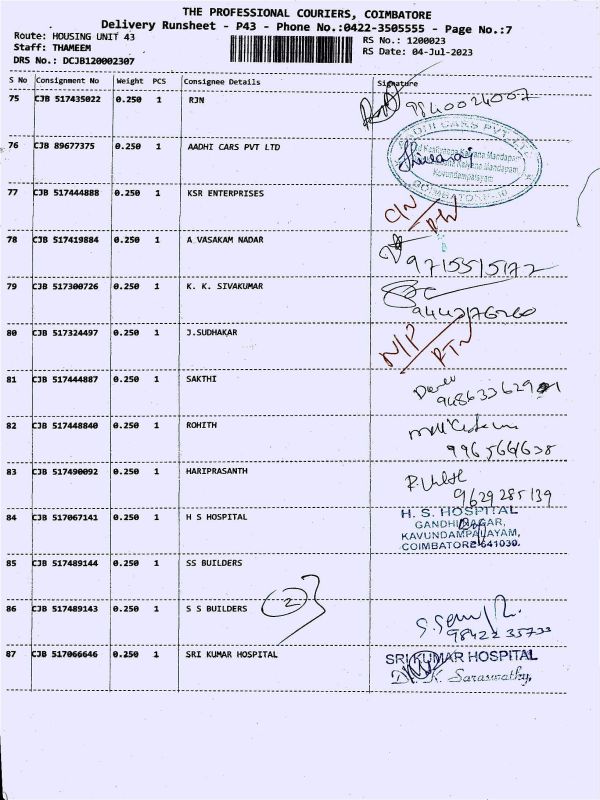 THE PROFESSIONAL COURIERS, COIMBATORE
Delivery Runsheet - P43 - Phone No.:0422-3505555 - Page No.:7
Route: HOUSING UNIT 43
RS No.: 1200023
Staff: THAMEEM
RS Date: 04-Jul-2023
DRS No.: DCJB120002307
S No Consignment No Weight PCS Consignee Details Signature
75 CJB 517435022 0.250 1 RJN 9840024007
76 CJB 89677375 0.250 1 AADHI CARS PVT LTD
AADHI CARS PVT LTD
Kalyana Mandapam
Kavundampalayam
COIMBATORE
77 CJB 517444888 0.250 1 KSR ENTERPRISES
78 CJB 517419884 0.250 1 A VASAKAM NADAR
9715515172
79 CJB 517300726 0.250 1 K. K. SIVAKUMAR
9442176260
80 CJB 517324497 0.250 1 J.SUDHAKAR N/P
RTN
81 CJB 517444887 0.250 1 SAKTHI
82 CJB 517448840 0.250 1 ROHITH
83 CJB 517490092 0.250 1 HARIPRASANTH
9629285139
84 CJB 517067141 0.250 1 H S HOSPITAL H. S. HOSPITAL
GANDHI NAGAR,
KAVUNDAMPALAYAM,
COIMBATORE-641030.
85 CJB 517489144 0.250 1 SS BUILDERS
86 CJB 517489143 0.250 1 S S BUILDERS 2
98422 35733
87 CJB 517066646 0.250 1 SRI KUMAR HOSPITAL SRI KUMAR HOSPITAL
Dr. K. Saraswathy,